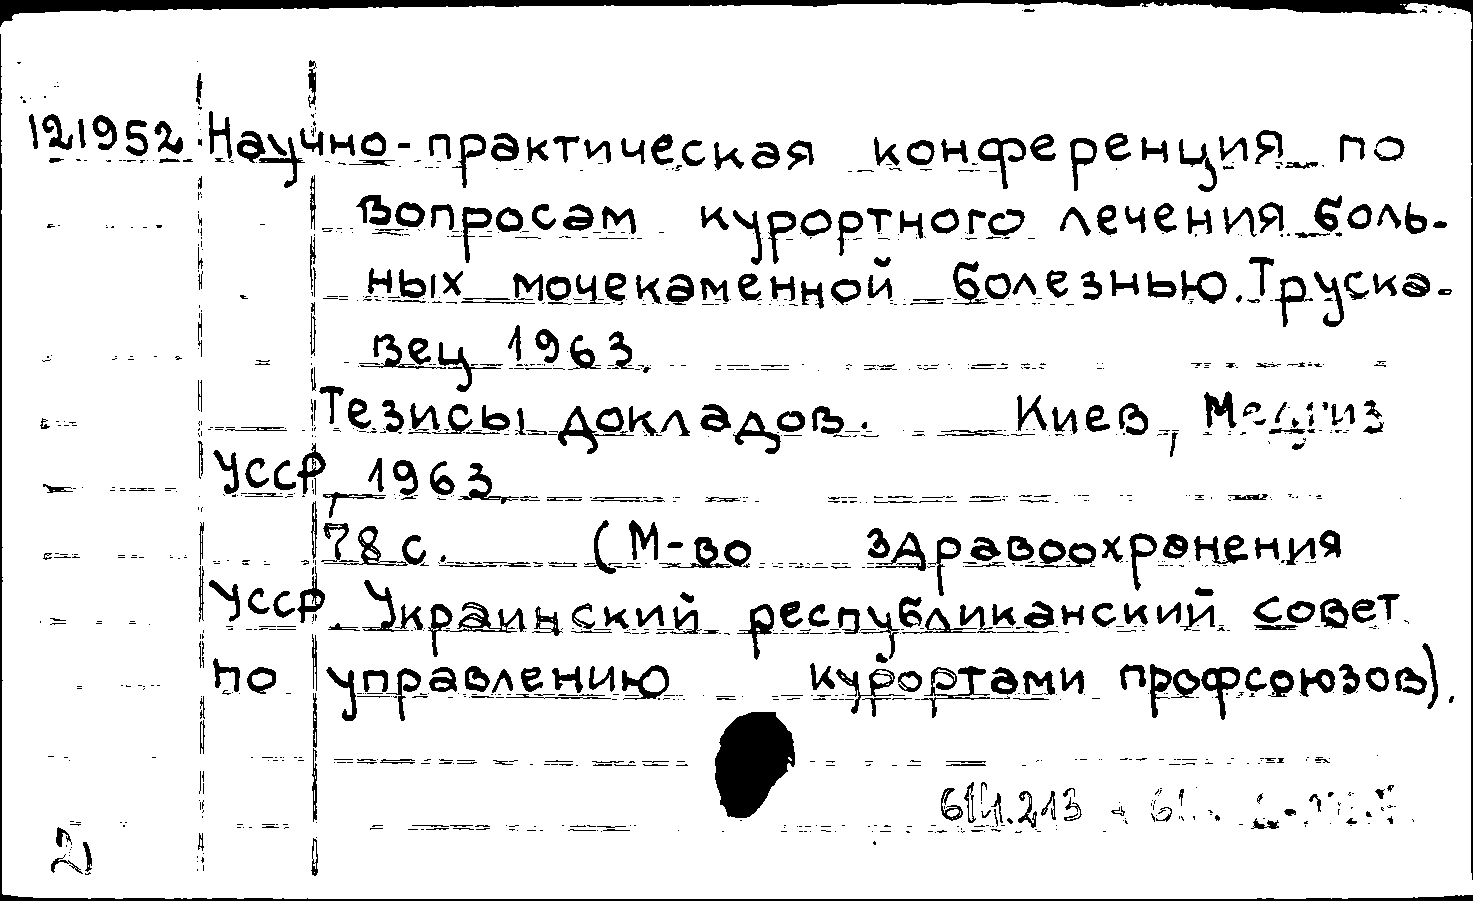 121952 Научно-практическая конференция по
вопросам курортного лечения боль-
ных мочекаменной болезнью. Труска-
вец 1963.
Тезисы докладов. Киев, Медгиз
УССР, 1963.
78 с. (М-во здравоохранения
УССР. Украинский республиканский совет
по управлению курортами профсоюзов).
2